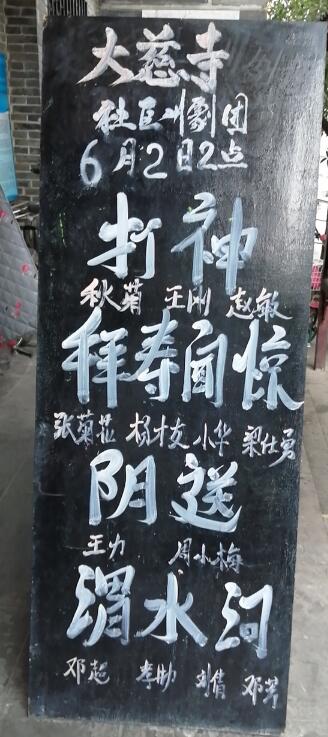 大慈寺
社区川劇团
6月2日2点
打神
秋菊 王刚 赵敏
拜寿自惊
张菊花 杨才友 小华 梁仕勇
阴送
王力 周小梅
渭水河
邓超 李勋 刘倩 邓芳